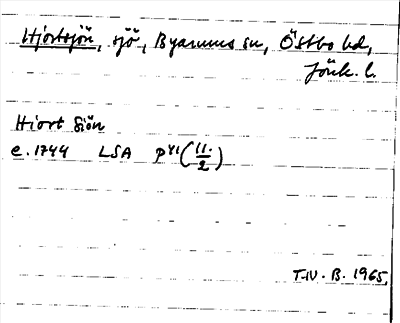 Hjortsjön, sjö, Byarums sn, Östbo hd,
Jönk. l.
Hiort Siön
e. 1744 LSA P41 (11/2)
T.W. B. 1965.